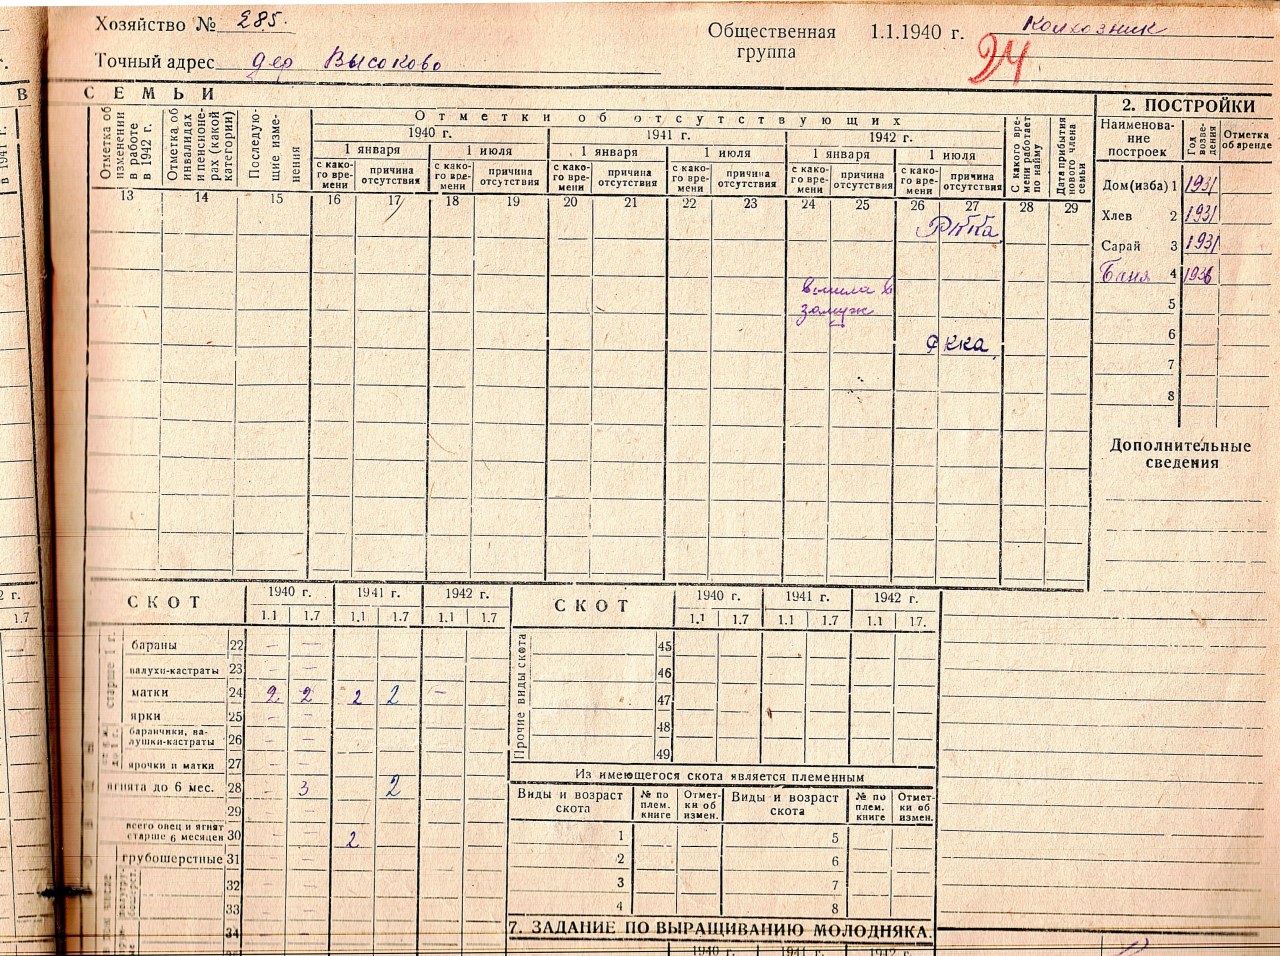 Хозяйство № 285.
Общественная группа 1.1.1940 г. Колхозник
24
Точный адрес дер Высоково
В СЕМЬИ
Отметка об изменении в работе в 1942 г.
Отметка об инвалидах и пенсионерах (какой категории)
Последующие изменения
Отметки об отсутствующих
1940 г. 1941 г. 1942 г.
1 января 1 июля 1 января 1 июля 1 января 1 июля
с какого времени причина отсутствия с какого времени причина отсутствия с какого времени причина отсутствия с какого времени причина отсутствия с какого времени причина отсутствия с какого времени причина отсутствия
С какого времени работает по найму
Дата прибытия нового члена семьи
13 14 15 16 17 18 19 20 21 22 23 24 25 26 27 28 29
РККА
вышла в
замуж
РККА
2. ПОСТРОЙКИ
Наименование построек Год возведения Отметка об аренде
Дом(изба) 1 1931
Хлев 2 1931
Сарай 3 1931
Баня 4 1936
5
6
7
8
Дополнительные
сведения
СКОТ 1940 г. 1941 г. 1942 г.
1.1 1.7 1.1 1.7 1.1 1.7
старше 1 г.
бараны 22 – –
валухи-кастраты 23 – –
матки 24 2 2 2 2 –
ярки 25 – –
баранчики, валушки-кастраты 26 – –
ярочки и матки 27 – –
ягнята до 6 мес. 28 – 3 2
29 – –
всего овец и ягнят старше 6 месяцев 30 2
грубошерстные 31 – –
32 – –
33 – –
34
СКОТ 1940 г. 1941 г. 1942 г.
1.1 1.7 1.1 1.7 1.1 17.
Прочие виды скота
45
46
47
48
49
Из имеющегося скота является племенным
Виды и возраст скота № по плем. книге Отметки об измен. Виды и возраст скота № по плем. книге Отметки об измен.
1 5
2 6
3 7
4 8
7. ЗАДАНИЕ ПО ВЫРАЩИВАНИЮ МОЛОДНЯКА.
1940 г. 1941 г. 1942 г.